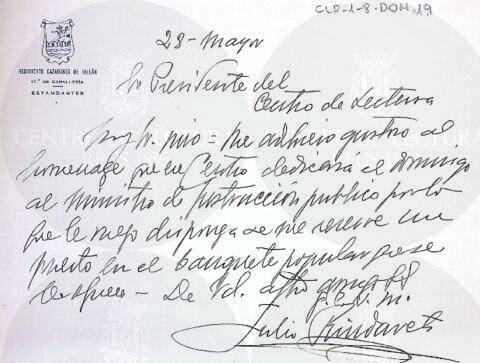 CLR-1-8-DOM.19
REGIMIENTO CAZADORES DE TETUÁN
17.º DE CABALLERÍA
ESTANDARTES
28-Mayo
Sr Presidente del
Centro de Lectura
Muy Sr. mio = Me adhiero gustoso al
homenage que ese Centro dedicara el domingo
al ministro de Instrucción publica por lo
que le ruego disponga se me reserve un
puesto en el banquete popular que se
De Vd. affmo amigo SS
q.e.s.m.
Julio